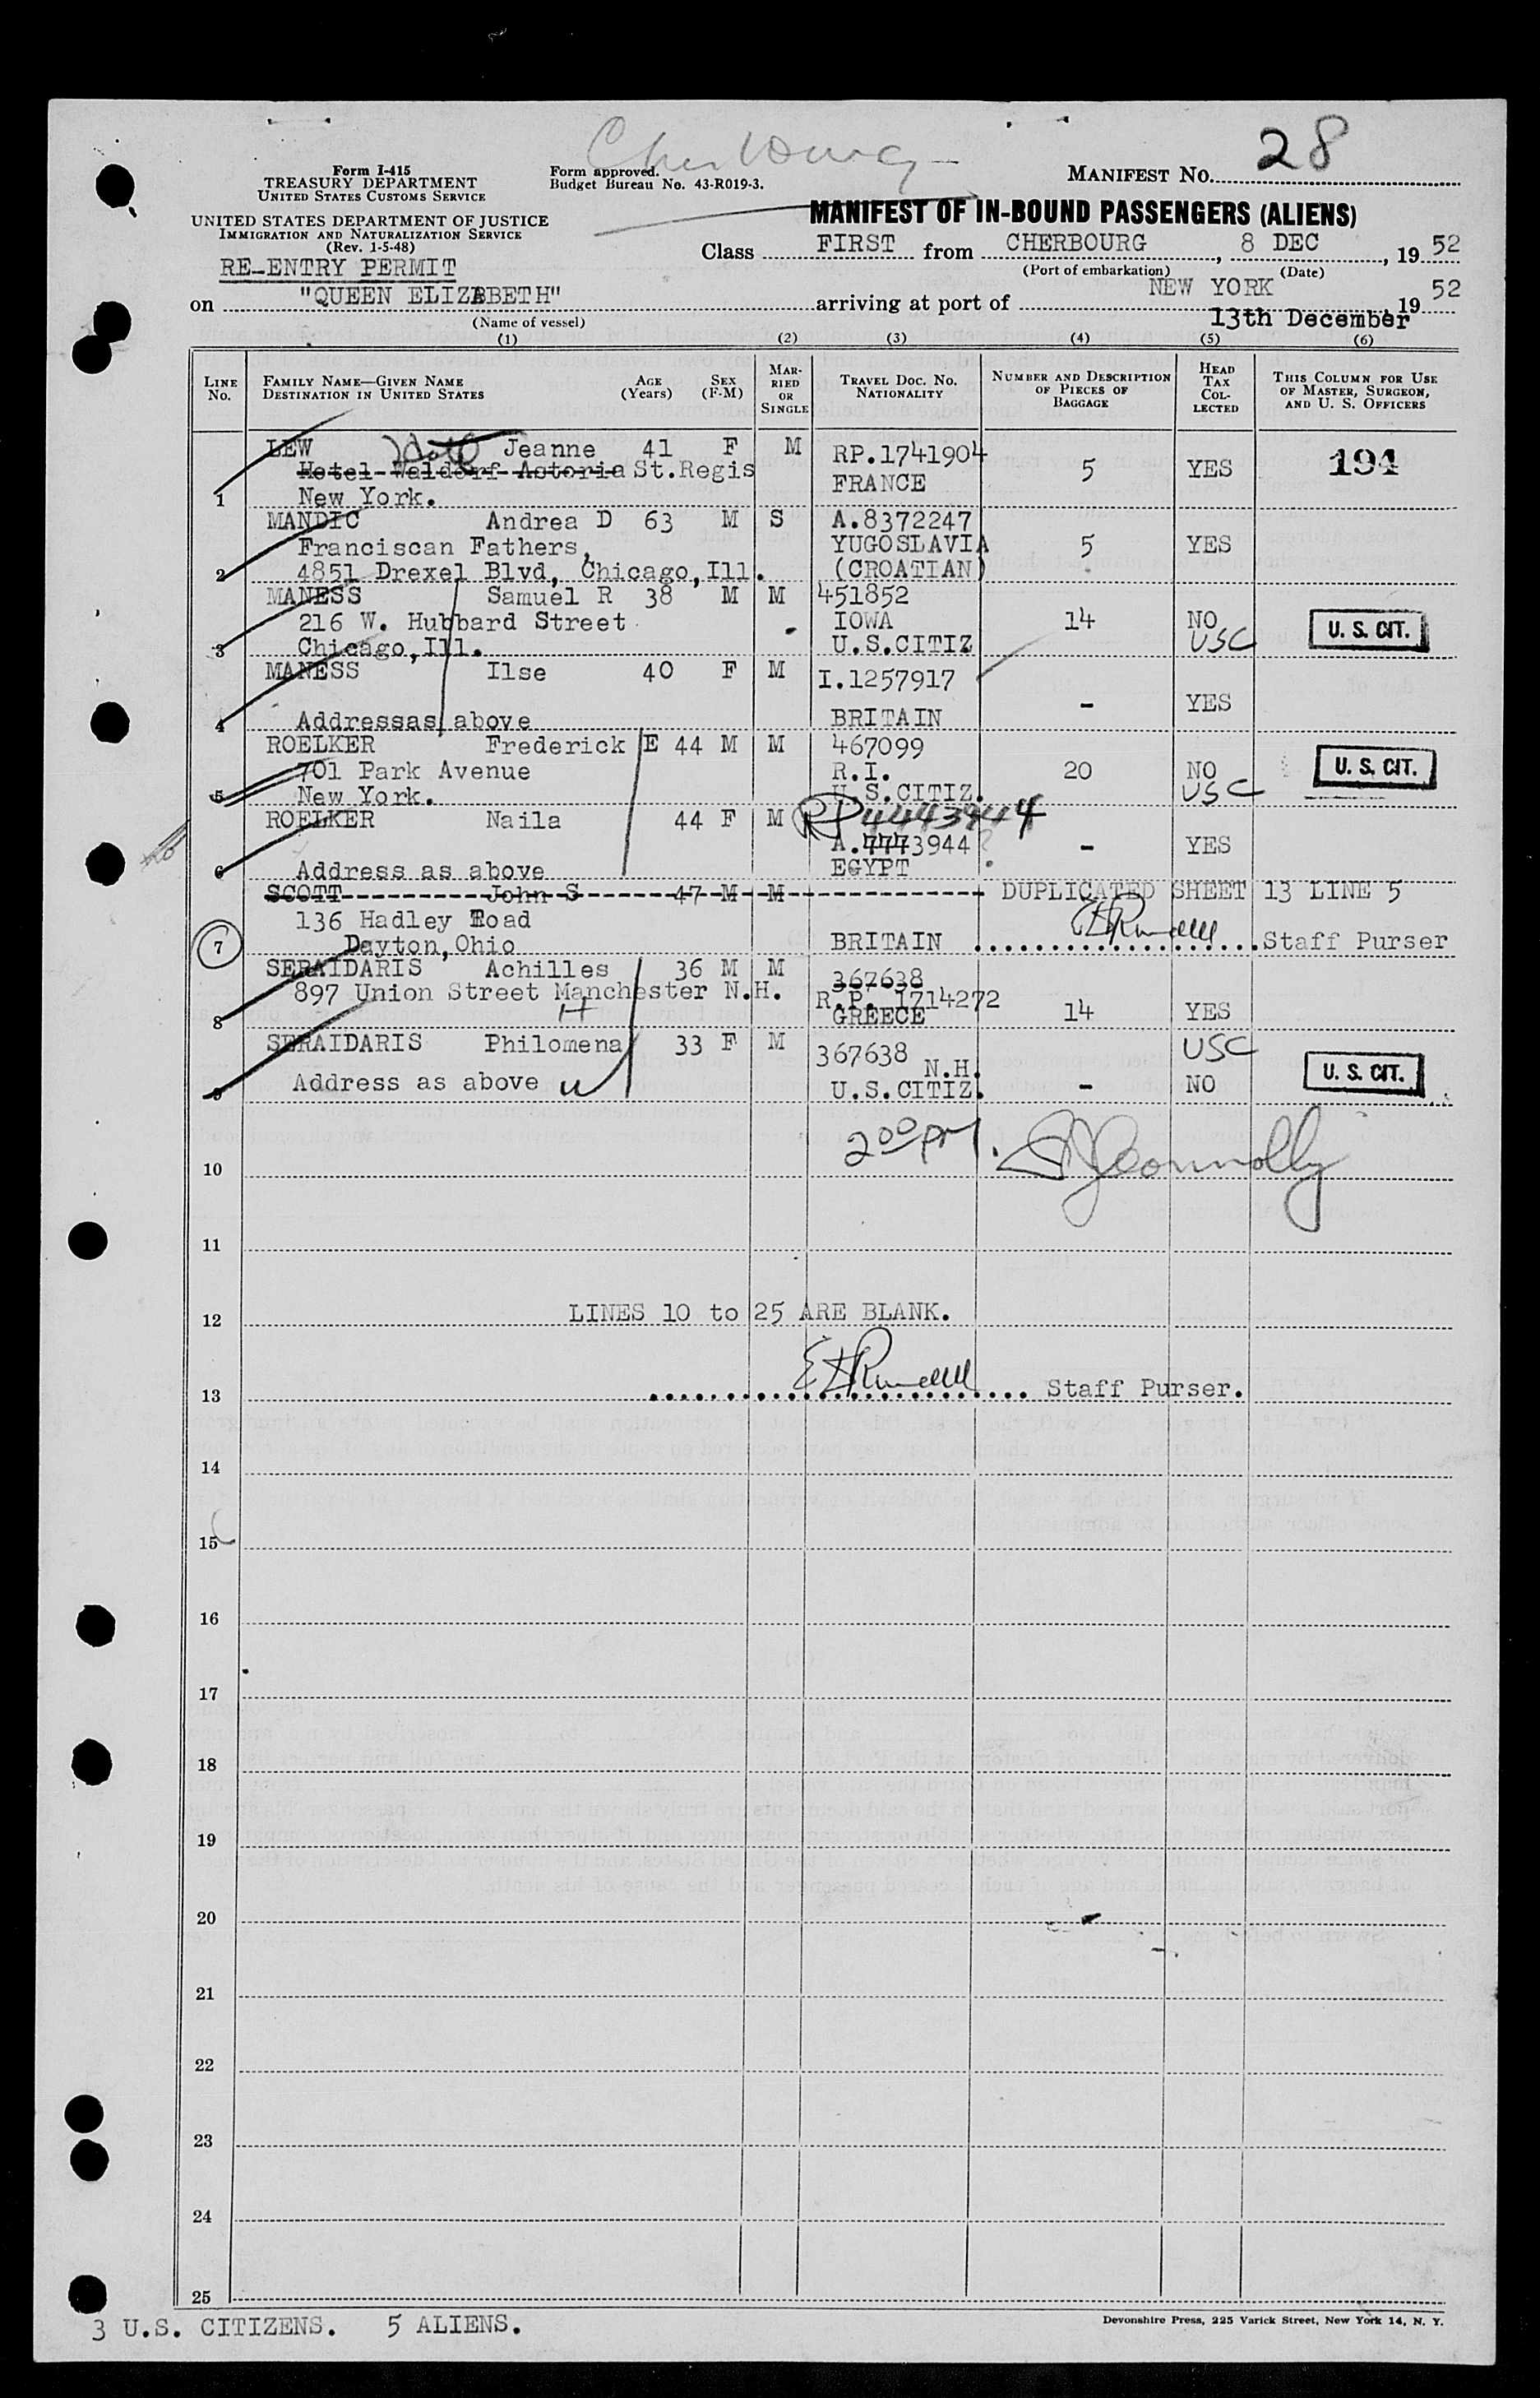 28
Form I-415
TREASURY DEPARTMENT
UNITED STATES CUSTOMS SERVICE
Form approved.
Budget Bureau No. 43-R019-3.
Cherbourg
MANIFEST NO.
UNITED STATES DEPARTMENT OF JUSTICE
IMMIGRATION AND NATURALIZATION SERVICE
(Rev. 1-5-48)
MANIFEST OF IN-BOUND PASSENGERS (ALIENS)
RE-ENTRY PERMIT
Class FIRST from CHERBOURG, 8 DEC, 19 52
(Port of embarkation) (Date)
on "QUEEN ELIZABETH" arriving at port of NEW YORK 19 52
(Name of vessel) 13th December
(1) (2) (3) (4) (5) (6)
LINE No. FAMILY NAME—GIVEN NAME DESTINATION IN UNITED STATES AGE (Years) SEX (F-M) MARRIED OR SINGLE TRAVEL DOC. NO. NATIONALITY NUMBER AND DESCRIPTION OF PIECES OF BAGGAGE HEAD TAX COLLECTED THIS COLUMN FOR USE OF MASTER, SURGEON, AND U. S. OFFICERS
LEW Jeanne 41 F M RP.1741904 5 YES 194
Hotel Waldorf Astoria St.Regis FRANCE
1 New York.
MANDIC Andrea D 63 M S A.8372247
Franciscan Fathers, YUGOSLAVIA 5 YES
2 4851 Drexel Blvd, Chicago,Ill. (CROATIAN)
MANESS Samuel R 38 M M 451852
216 W. Hubbard Street IOWA 14 NO U. S. CIT.
3 Chicago,Ill. U.S.CITIZ USC
MANESS Ilse 40 F M I.1257917
- YES
4 Addressas above BRITAIN
ROELKER Frederick E 44 M M 467099
701 Park Avenue R.I. 20 NO U. S. CIT.
5 New York. U.S.CITIZ. USC
ROELKER Naila 44 F M RP 4443944
A.7773944 - YES
6 Address as above EGYPT
SCOTT John S 47 M M DUPLICATED SHEET 13 LINE 5
136 Hadley Road
7 Dayton,Ohio BRITAIN Staff Purser
SERAIDARIS Achilles 36 M M 367638
897 Union Street Manchester N.H. R.P. 1714272
8 H GREECE 14 YES
SERAIDARIS Philomena 33 F M 367638 N.H. USC
9 Address as above W U.S.CITIZ. - NO U. S. CIT.
2 00 pm. Connolly
10
11
12 LINES 10 to 25 ARE BLANK.
13 Staff Purser.
14
15
16
17
18
19
20
21
22
23
24
25
3 U.S. CITIZENS. 5 ALIENS.
Devonshire Press, 225 Varick Street, New York 14, N. Y.